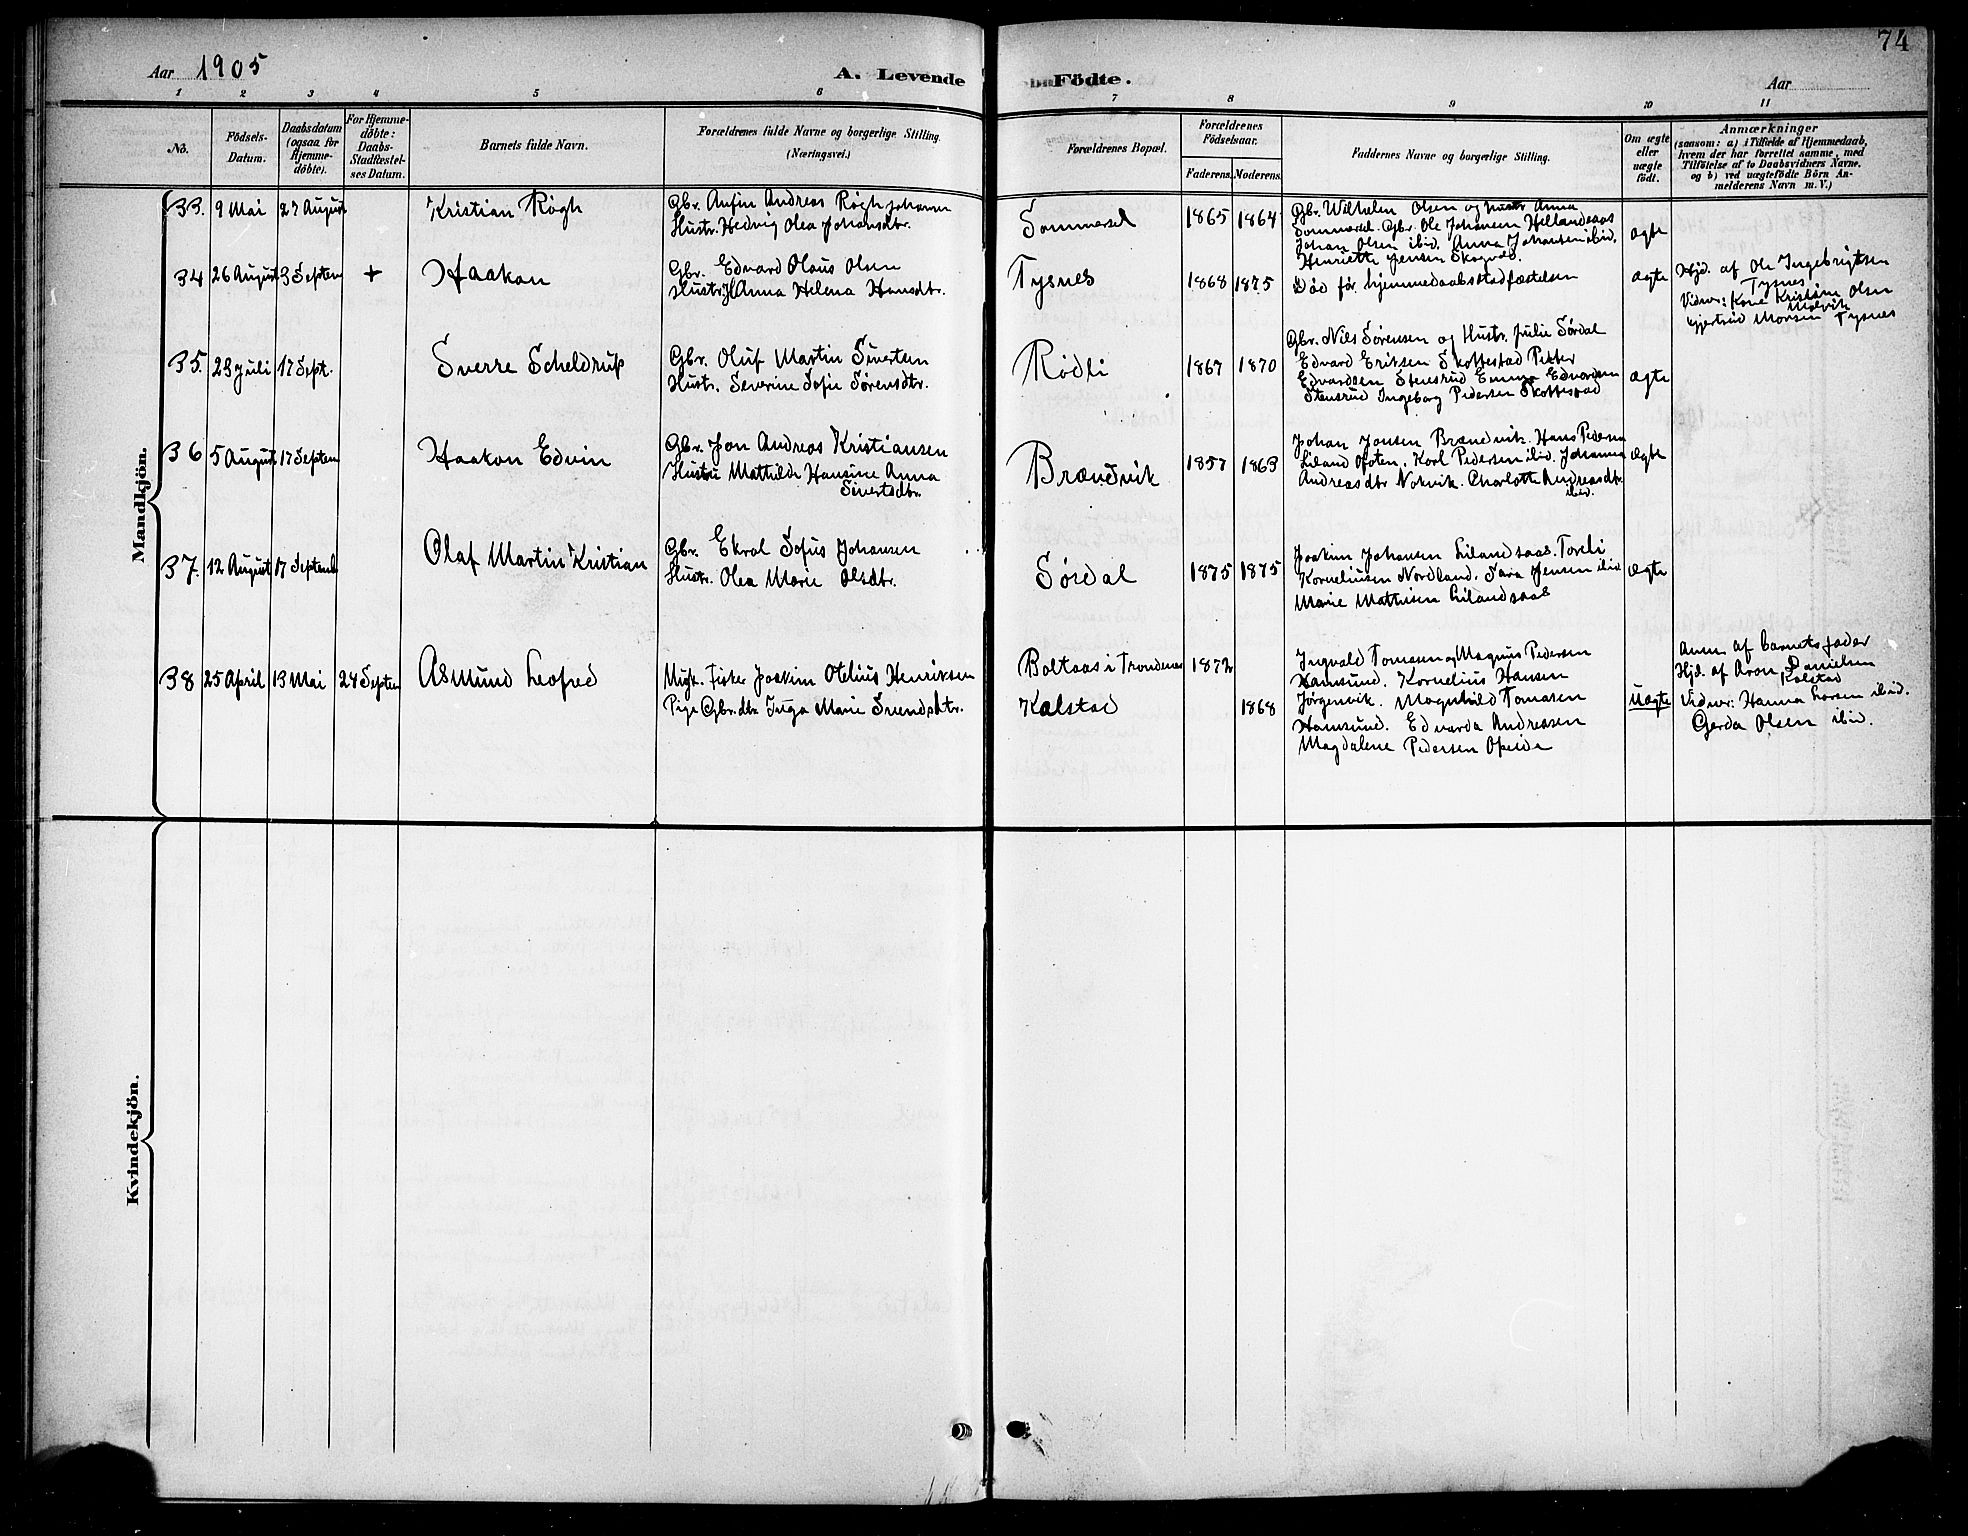 74
Aar 1905
A. Levende Födte.
Aar
1 2 3 4 5 6 7 8 9 10 11
No.
Födsels-
Datum.
Daabsdatum
(ogsaa for
Hjemme-
döbte).
For Hjemme-
döbte:
Daabs-
Stadfæstel-
ses Datum.
Barnets fulde Navn.
Forældrenes fulde Navne og borgerlige Stilling.
(Næringsvei.)
Forældrenes Bopæl.
Forældrenes
Födselsaar.
Faderens. Moderens.
Faddernes Navne og borgerlige Stilling.
Om ægte
eller
uægte
födt.
Anmærkninger
(saasom: a) i Tilfælde af Hjemmedaab,
hvem der har forrettet samme, med
Tilföielse af to Daabsvidners Navne.
og b) ved uægtefödte Börn An-
melderens Navn m. V.)
Mandkjön.
33. 9 Mai 27 August
Kristian Røgh
Gbr. Anfin Andreas Røgh Johansen
Hustr. Hedvig Olea Johansdtr.
Sommersel
1865 1864
Gbr. Wilhelm Olsen og Hustr Anna
Sommersel. Gbr. Ole Johansen Hellandsaas
Johan Olsen ibid. Anna Johansen ibid.
Henriette Jensen Skogvold.
ægte
34 26 August 3 Septem +
Haakon
Gbr. Edvard Olaus Olsen
Hustr. Anna Helena Hansdtr.
Tysnes
1868 1875
Død før hjemmedaabsstadfæstelsen
ægte
Hjd. af Ole Ingebrigtsen
Tysnes
Vidner: Kone Kristine Olsen
Malvik
Gjertrud Monsen Tysnes
35. 23 Juli 17 Sept.
Sverre Scheldrup
Gbr. Oluf Martin Sivertsen
Hustr. Severine Sofie Sørensdtr.
Rødli
1867 1870
Gbr. Nils Sørensen og Hustr. Julie Sørdal
Edvard Eriksen Skottestad Petter
Edvardsen Stensrud Emma Edvardsen
Stensrud Ingeborg Pedersen Skottestad
ægte
36 5 August 17 Septem
Haakon Edvin
Gbr. Jon Andreas Kristiansen
Hustru Mathilde Hansine Anna
Sivertsdtr.
Brændvik
1857 1863
Johan Jonsen Brændvik. Hans Pedersen
Liland Ofoten. Karl Pedersen ibid. Johanna
Andreasdtr Nokvik. Charlotte Andreasdtr.
ibid.
ægte
37. 12 August 17 Septemb
Olaf Martin Kristian
Gbr. Ekral Sofus Johansen
Hustr. Olea Marie Olsdtr.
Sørdal
1875 1875
Joakim Johansen Lilandsaas. Toreli
Korneliusen Nordland. Sara Jensen ibid
Marie Mathisen Lilandsaas
ægte
38 25 April 13 Mai 24 Septem
Asmund Leofred
Ungk. Fisker Joakim Otelius Henriksen
Pige Gbr.dtr. Inga Marie Svendsdtr.
Boltaas i Trondenes 1872
Kalstad 1868
Ingvald Tomasen og Magnus Pedersen
Hamsund. Kornelius Hansen
Jørgenvik. Magnhild Tomasen
Hamsund. Edvarda Andreasen
Magdalene Pedersen Opeide
Uægte
Anm. af barnets fader
Hjd. af Aron Danielsen
Kalstad
Vidner: Hanna Larsen ibid.
Gerda Olsen ibid.
Kvindekjön.